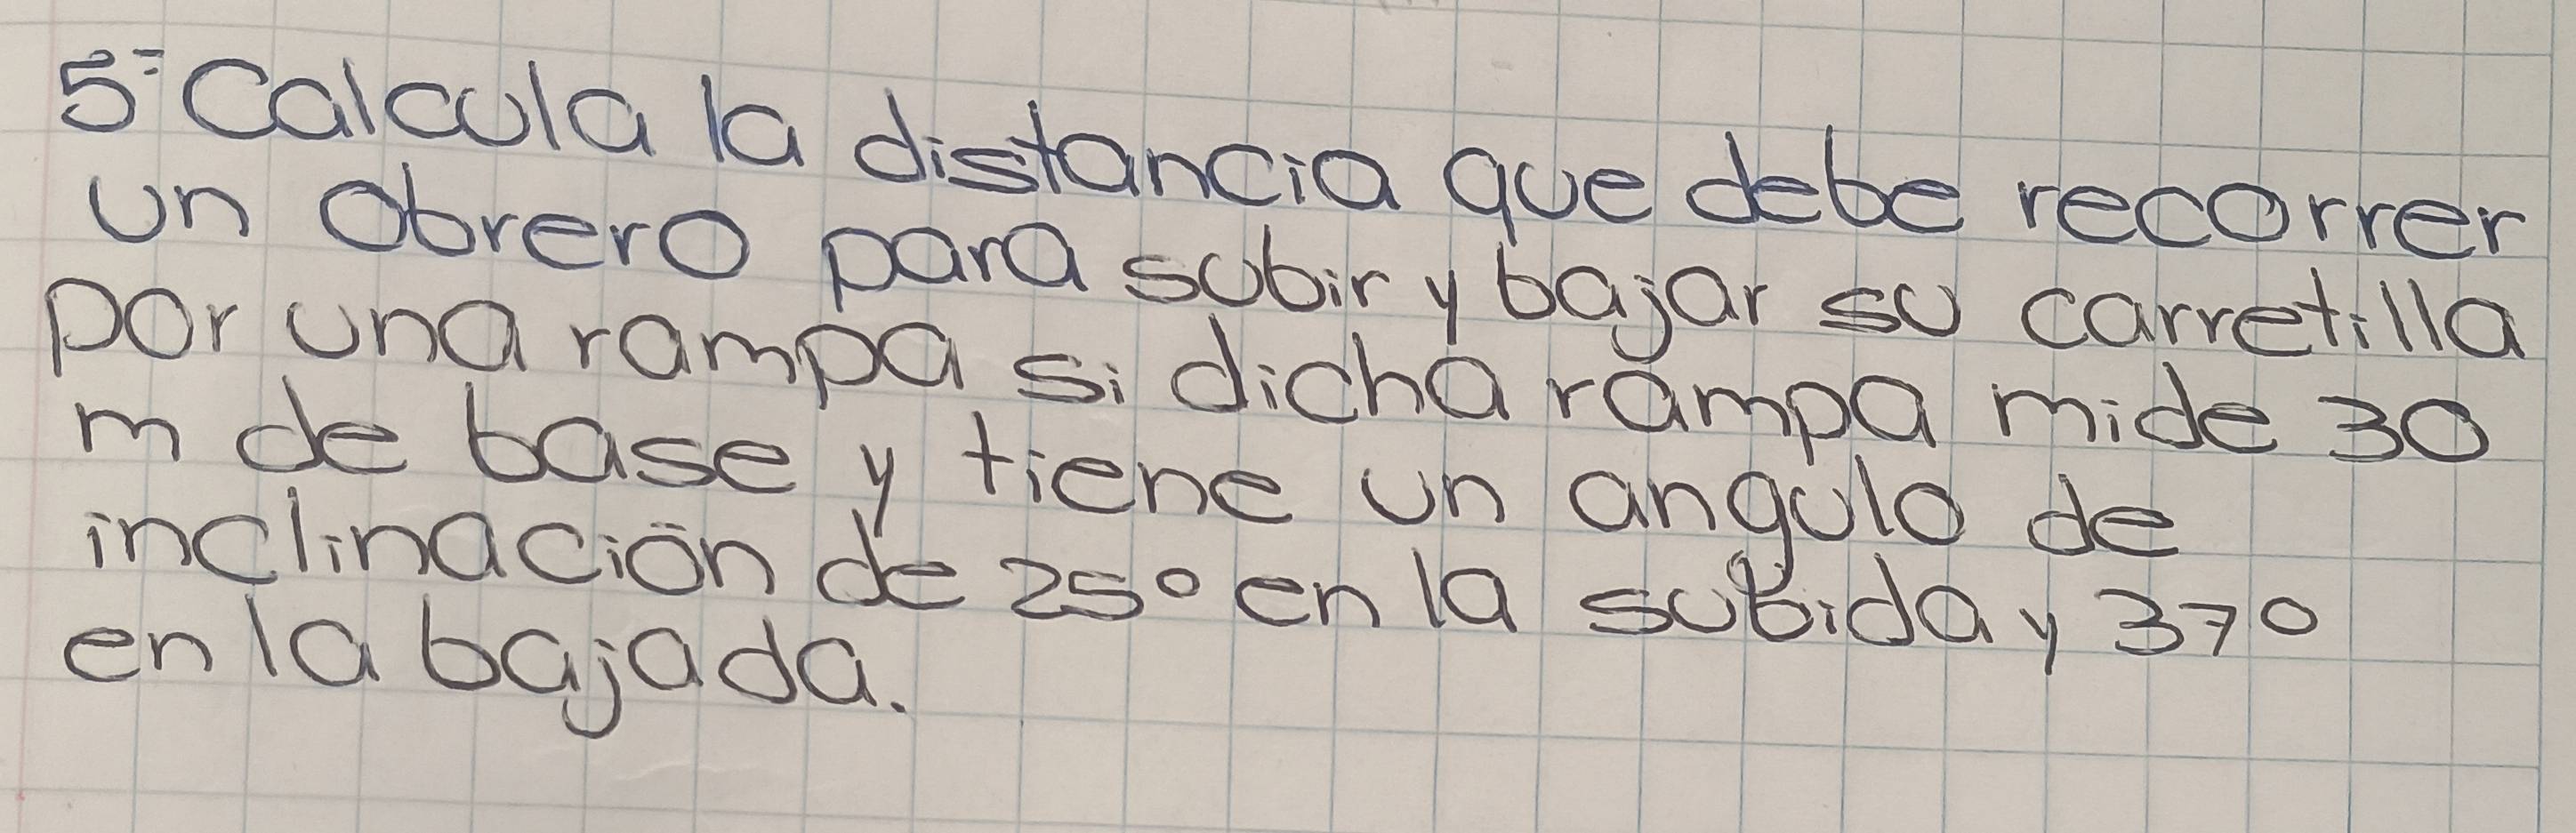 5- Calcula la distancia que debe recorrer
un obrero para subir y bajar su carretilla
por una rampa si dicha rampa mide 30
m de base y tiene un angulo de
inclinación de 25° en la subida y 37°
en la bajada.